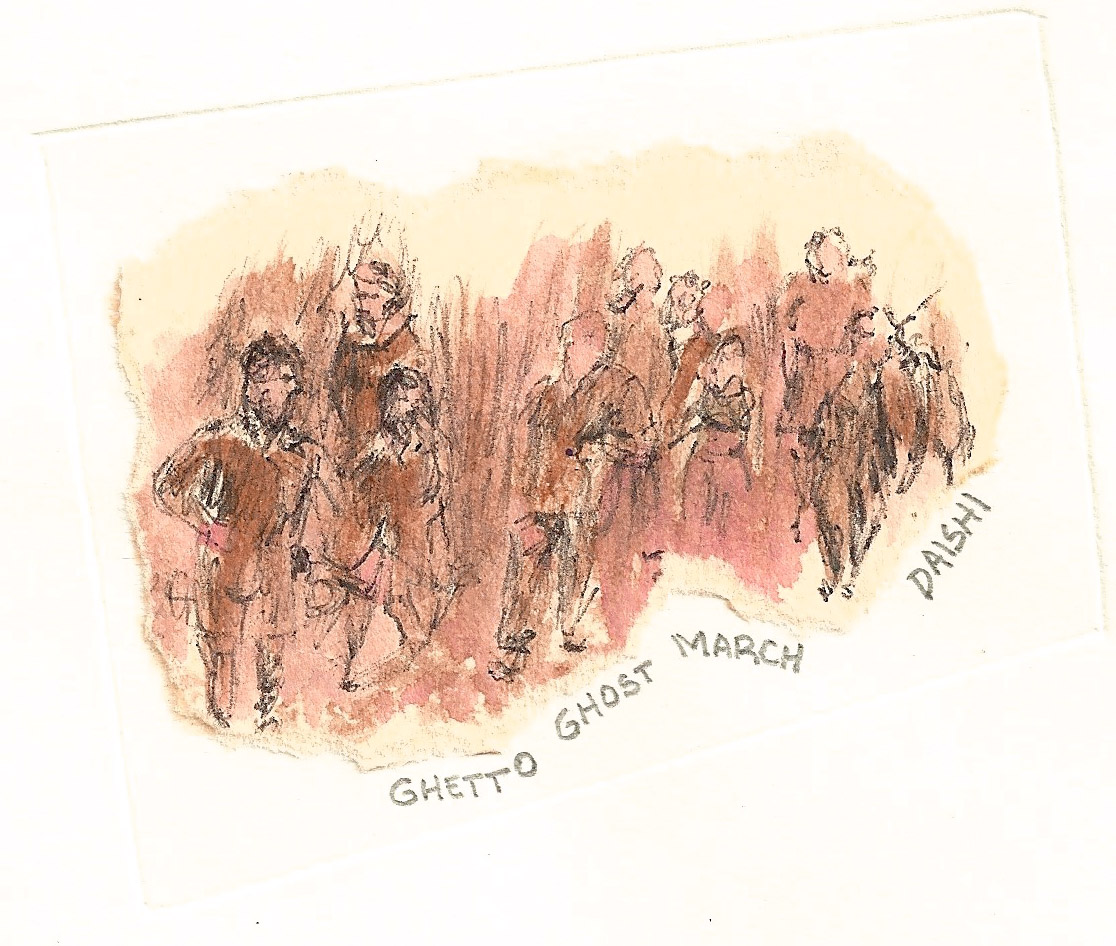 GHETTO GHOST MARCH
DAISHI